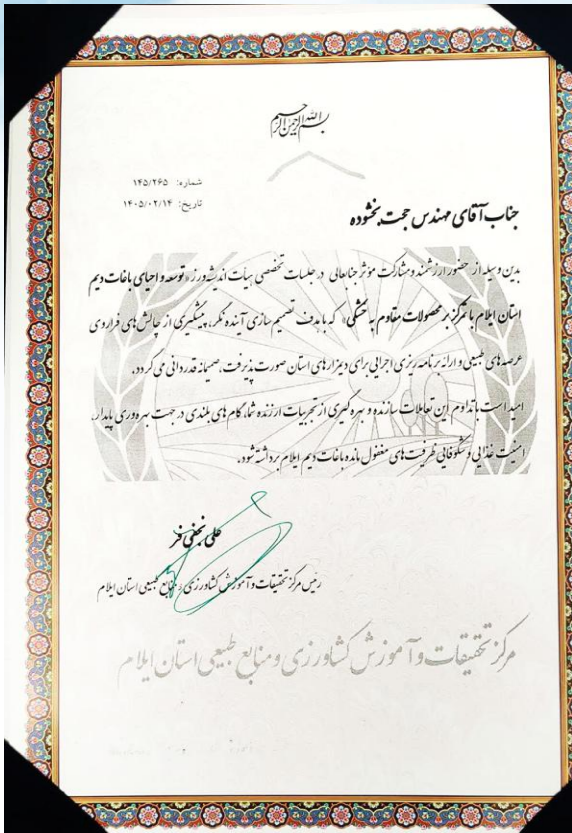 بسم الله الرحمن الرحیم
شماره: ۱۴۵/۲۶۵
تاریخ: ۱۴۰۵/۰۲/۱۴
جناب آقای مهندس حجت بخشوده
بدین وسیله از حضور ارزشمند و مشارکت مؤثر جنابعالی در جلسات تخصصی هیأت اندیشه‌ورز «توسعه و احیای باغات دیم
استان ایلام با تمرکز بر محصولات مقاوم به خشکی» که با هدف تصمیم سازی آینده نگر، پیشگیری از چالش های فراروی
عرصه های طبیعی و ارائه برنامه ریزی اجرایی برای دیمزارهای استان صورت پذیرفت، صمیمانه قدردانی می گردد.
امید است با تداوم این تعاملات سازنده و بهره گیری از تجربیات ارزنده شما، گام های بلندی در جهت بهره وری پایدار،
امنیت غذایی و شکوفایی ظرفیت های مغفول مانده باغات دیم ایلام برداشته شود.
علی نجفی فر
رئیس مرکز تحقیقات و آموزش کشاورزی و منابع طبیعی استان ایلام
مرکز تحقیقات و آموزش کشاورزی و منابع طبیعی استان ایلام